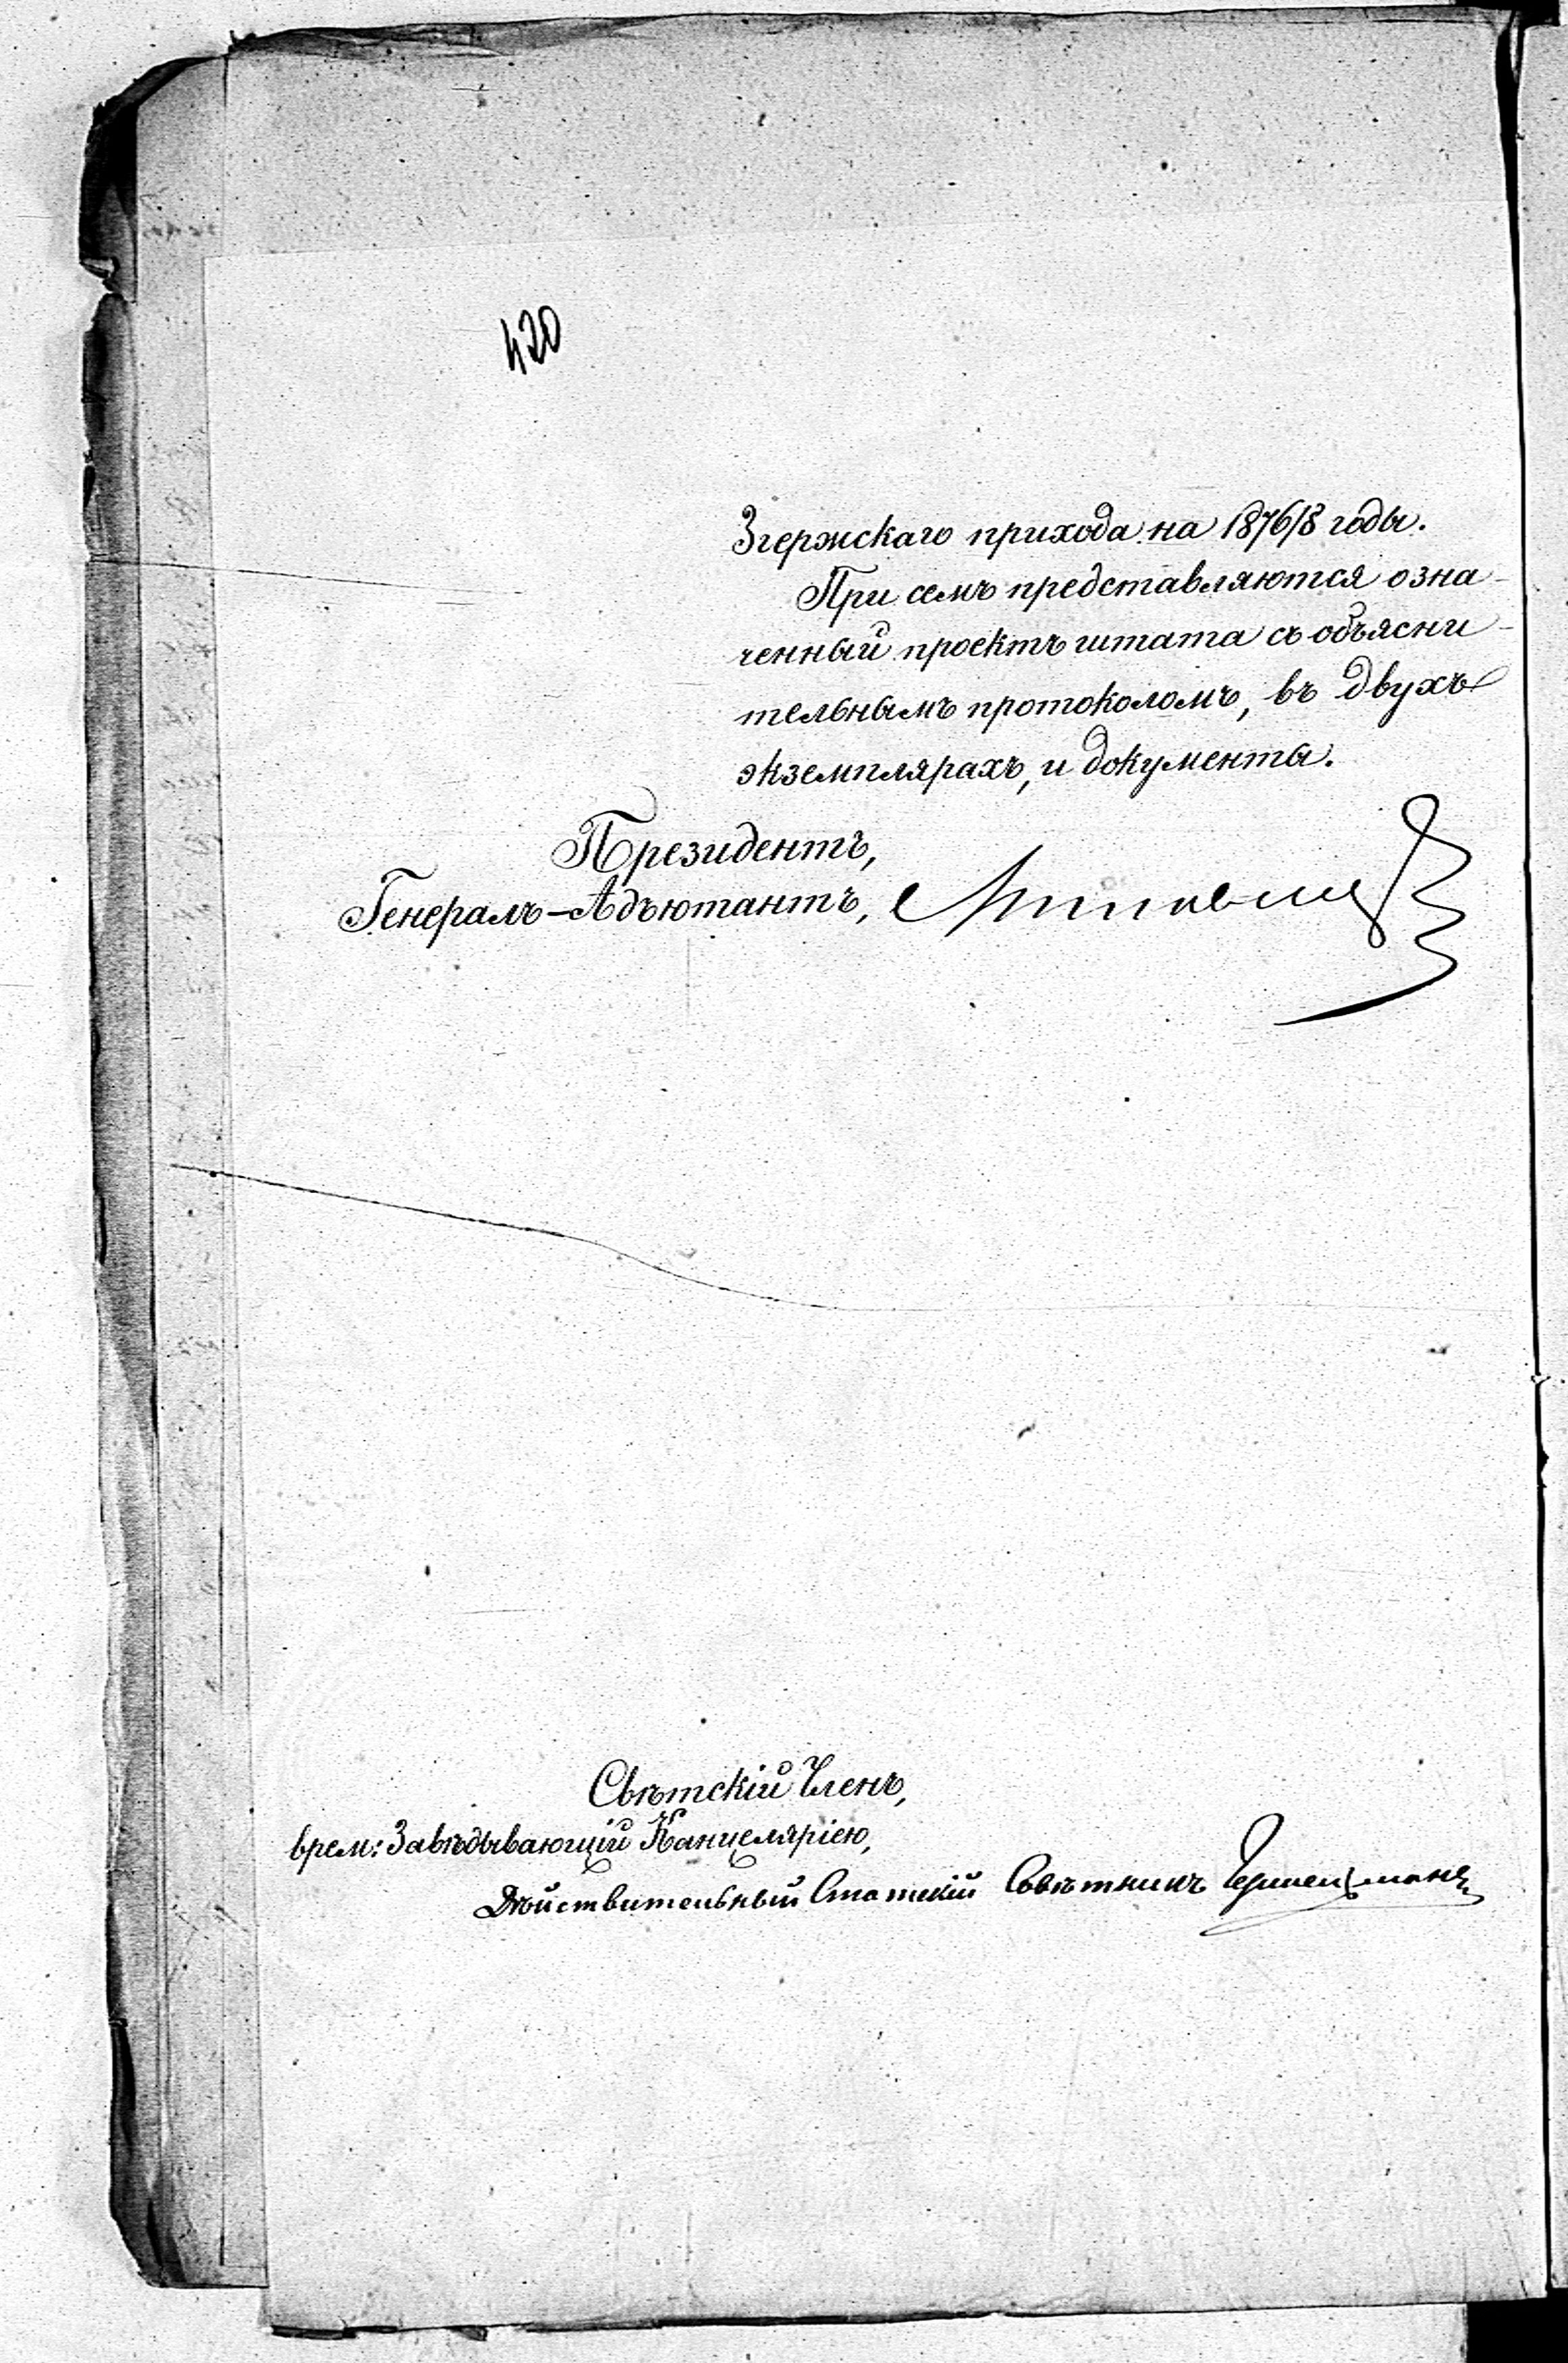 420
Згержскаго прихода на 1876/8 годы.
При семъ представляются озна-
ченный проектъ штата съ объясни-
тельнымъ протоколомъ, въ двухъ
экземплярахъ, и документы.
Президентъ,
Генералъ-Адъютантъ,
Свѣтскій Членъ,
врем: Завѣдывающій Канцеляріею,
Дѣйствительный Статскій Совѣтникъ